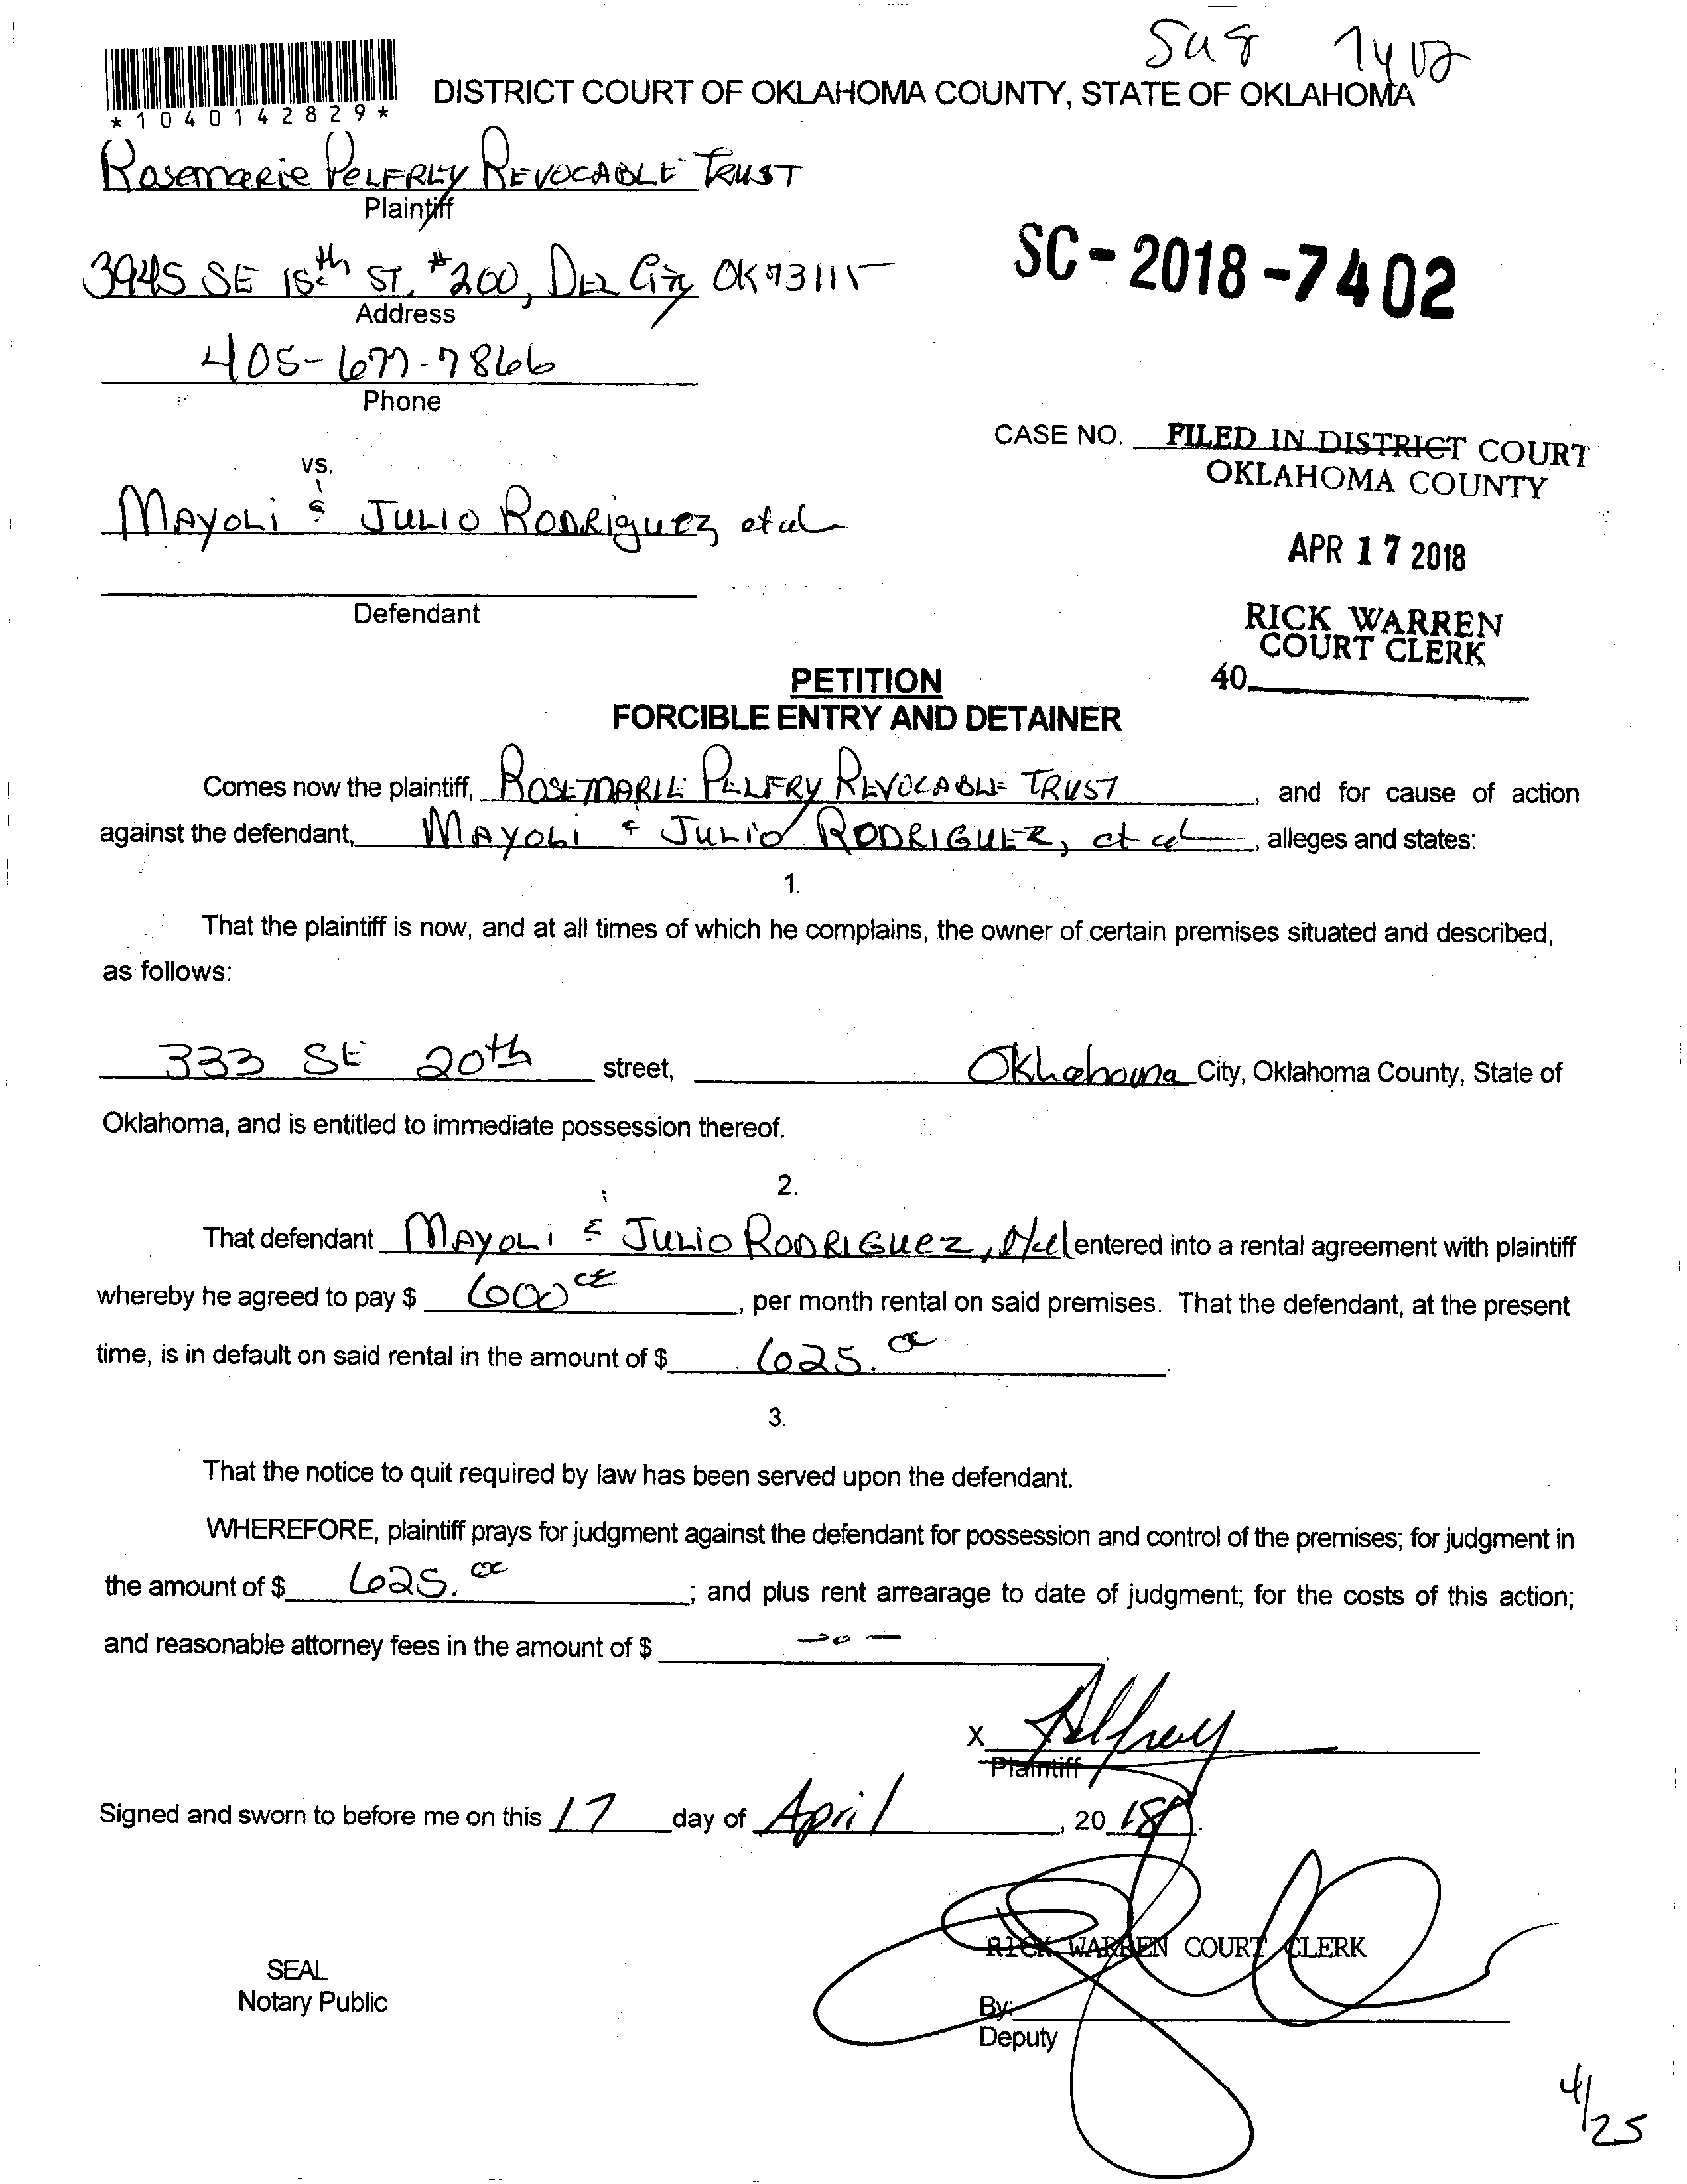 SU8 7402
*1040142829*
DISTRICT COURT OF OKLAHOMA COUNTY, STATE OF OKLAHOMA
Rosemarie Pelfrey Revocable Trust
Plaintiff
3945 SE 15th ST. #200, Del City OK 73115
Address
SC-2018-7402
405-677-7866
Phone
CASE NO. FILED IN DISTRICT COURT
OKLAHOMA COUNTY
vs.
Mayoli & Julio Rodriguez, et al
APR 17 2018
Defendant
RICK WARREN
COURT CLERK
40
PETITION
FORCIBLE ENTRY AND DETAINER
Comes now the plaintiff, Rosemarie Pelfry Revocable Trust, and for cause of action
against the defendant, Mayoli & Julio Rodriguez, et al, alleges and states:
1.
That the plaintiff is now, and at all times of which he complains, the owner of certain premises situated and described,
as follows:
333 SE 20th street, Oklahoma City, Oklahoma County, State of
Oklahoma, and is entitled to immediate possession thereof.
2.
That defendant Mayoli & Julio Rodriguez, et al entered into a rental agreement with plaintiff
whereby he agreed to pay $ 600 00, per month rental on said premises. That the defendant, at the present
time, is in default on said rental in the amount of $ 625.00.
3.
That the notice to quit required by law has been served upon the defendant.
WHEREFORE, plaintiff prays for judgment against the defendant for possession and control of the premises; for judgment in
the amount of $ 625.00; and plus rent arrearage to date of judgment; for the costs of this action;
and reasonable attorney fees in the amount of $ -0-.
X Pelfrey
Plaintiff
Signed and sworn to before me on this 17 day of April, 20 18.
RICK WARREN COURT CLERK
SEAL
Notary Public
By:
Deputy
4/25